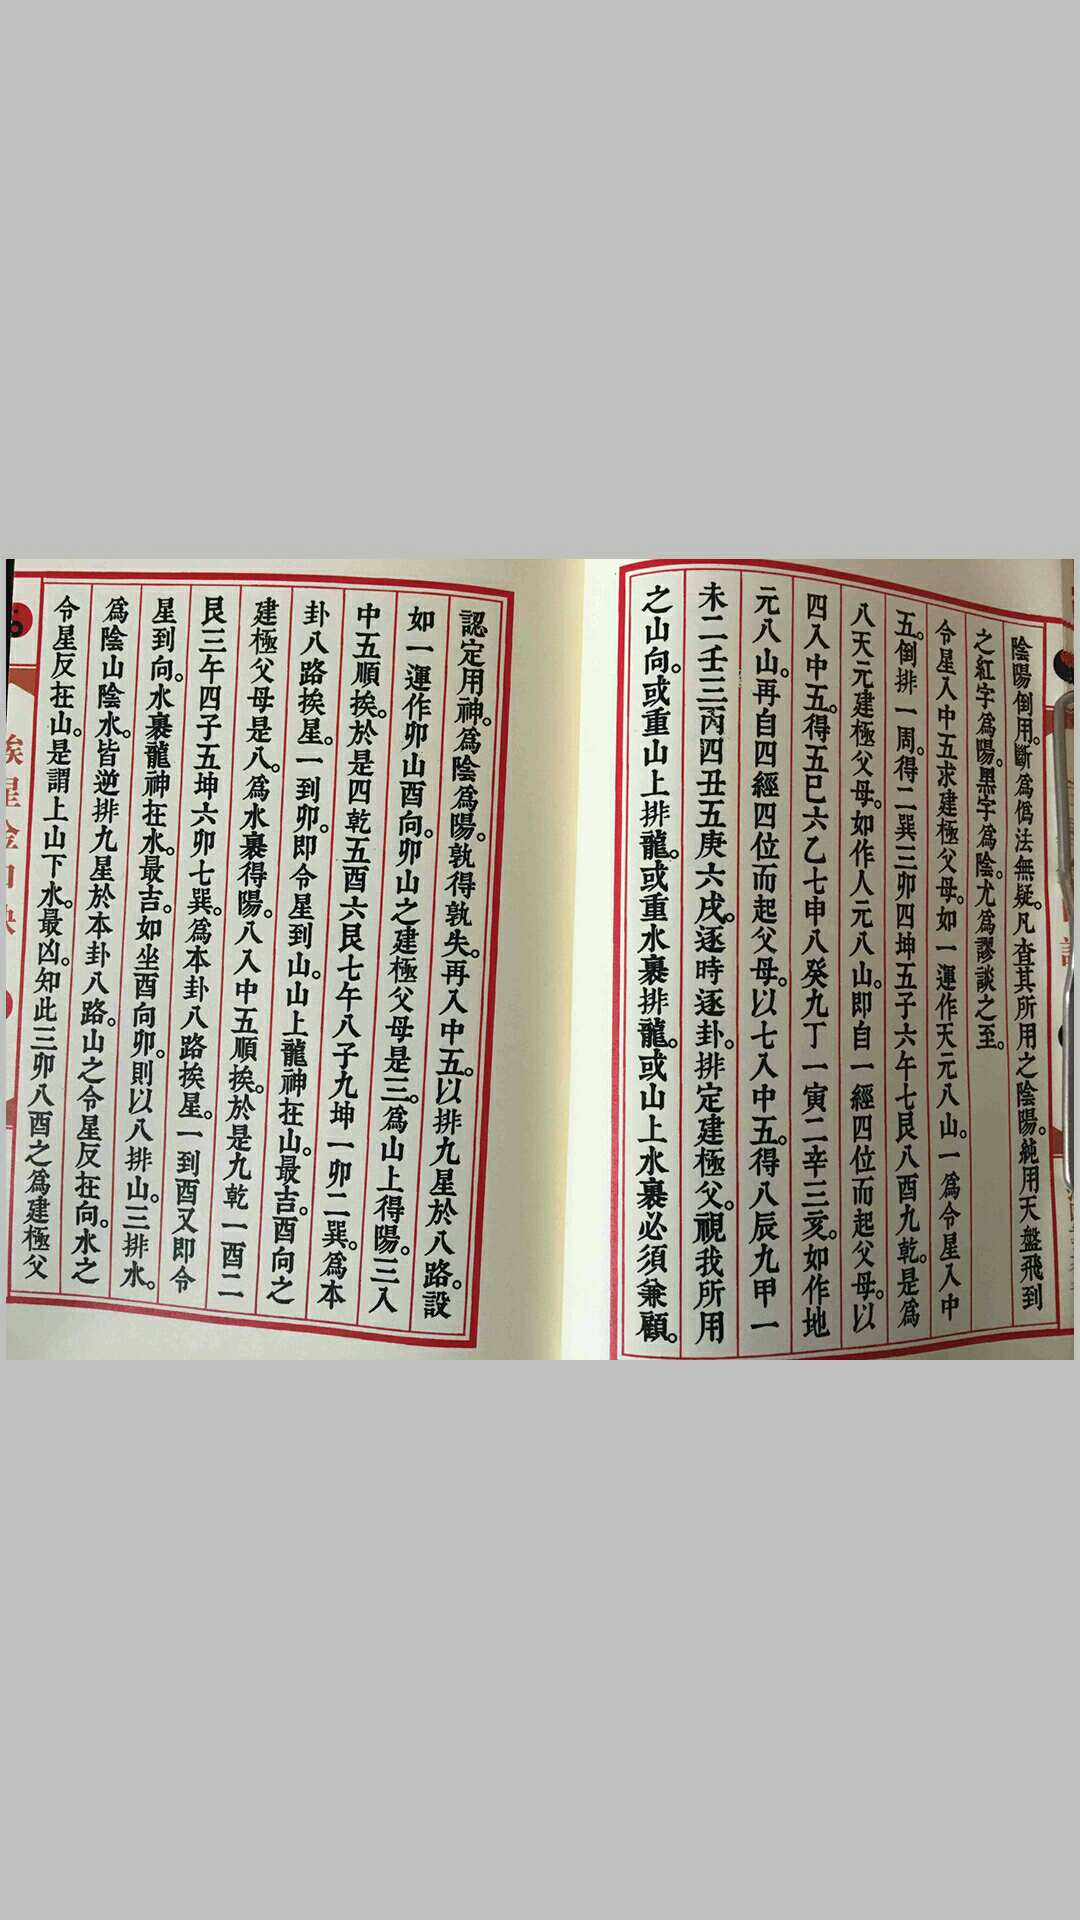 陰陽倒用。斷爲僞法無疑。凡查其所用之陰陽。純用天盤飛到
之紅字爲陽。黑字爲陰。尤爲謬談之至。
令星入中五求建極父母。如一運作天元八山。一爲令星入中
五。倒排一周。得二巽三卯四坤五子六午七艮八酉九乾。是爲
八天元建極父母。如作人元八山。即自一經四位而起父母。以
四入中五。得五巳六乙七申八癸九丁一寅二辛三亥。如作地
元八山。再自四經四位而起父母。以七入中五。得八辰九甲一
未二壬三丙四丑五庚六戌。逐時逐卦。排定建極父。視我所用
之山向。或重山上排龍。或重水裹排龍。或山上水裹必須兼顧。
認定用神。爲陰爲陽。孰得孰失。再入中五。以排九星於八路。設
如一運作卯山酉向。卯山之建極父母是三。爲山上得陽。三入
中五順挨。於是四乾五酉六艮七午八子九坤一卯二巽。爲本
卦八路挨星。一到卯。即令星到山。山上龍神在山。最吉。酉向之
建極父母是八。爲水裹得陽。八入中五順挨。於是九乾一酉二
艮三午四子五坤六卯七巽。爲本卦八路挨星。一到酉又即令
星到向。水裹龍神在水。最吉。如坐酉向卯。則以八排山。三排水。
爲陰山陰水。皆逆排九星於本卦八路。山之令星反在向。水之
令星反在山。是謂上山下水。最凶。知此三卯八酉之爲建極父
挨星金口訣